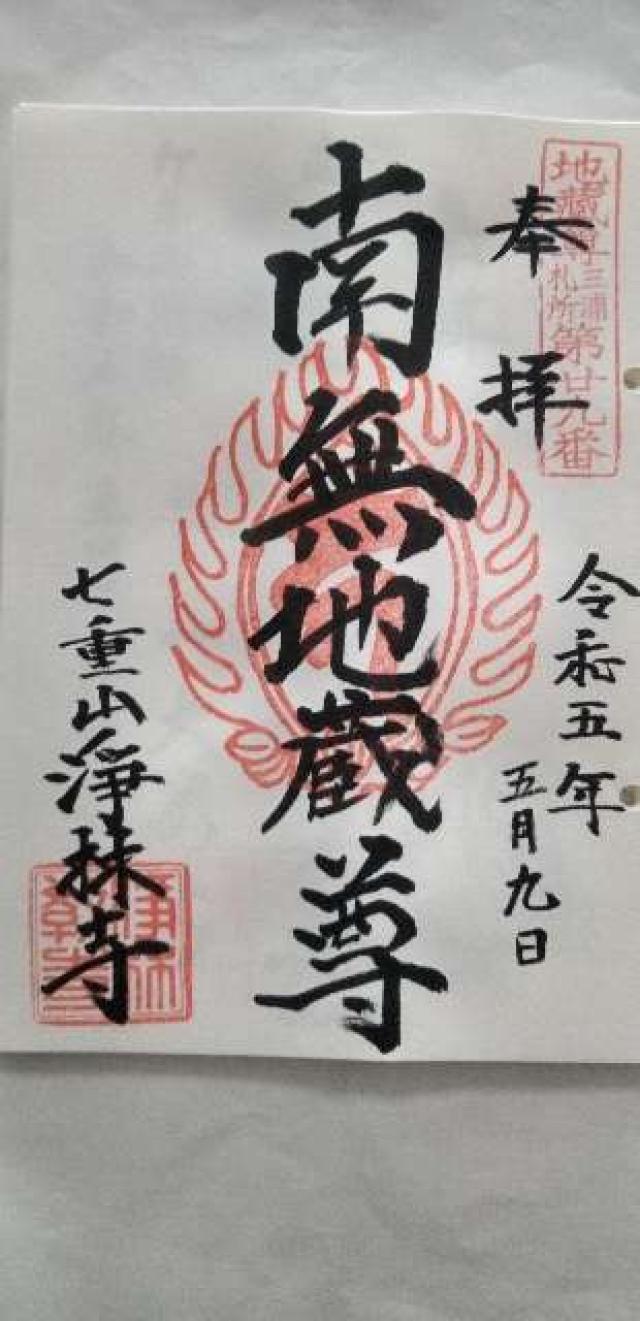 地蔵尊三浦札所第廿九番
奉拝
令和五年
五月九日
南無地蔵尊
七重山淨林寺